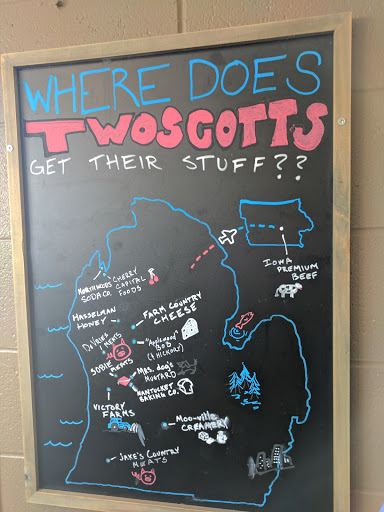 WHERE DOES
TWOSCOTTS
GET THEIR STUFF??
IOWA
PREMIUM
BEEF
NORTHWOODS
SODA CO.
CHERRY
CAPITAL
FOODS
HASSELMAN
HONEY
FARM COUNTRY
CHEESE
DEVRIES
MEATS
"APPLEWOOD"
BOB
(& HICKORY)
SOBIE
MEATS
MRS. DOG'S
MUSTARD
NANTUCKET
BAKING CO.
VICTORY
FARMS
MOO-VILLE
CREAMERY
JAKE'S COUNTRY
MEATS